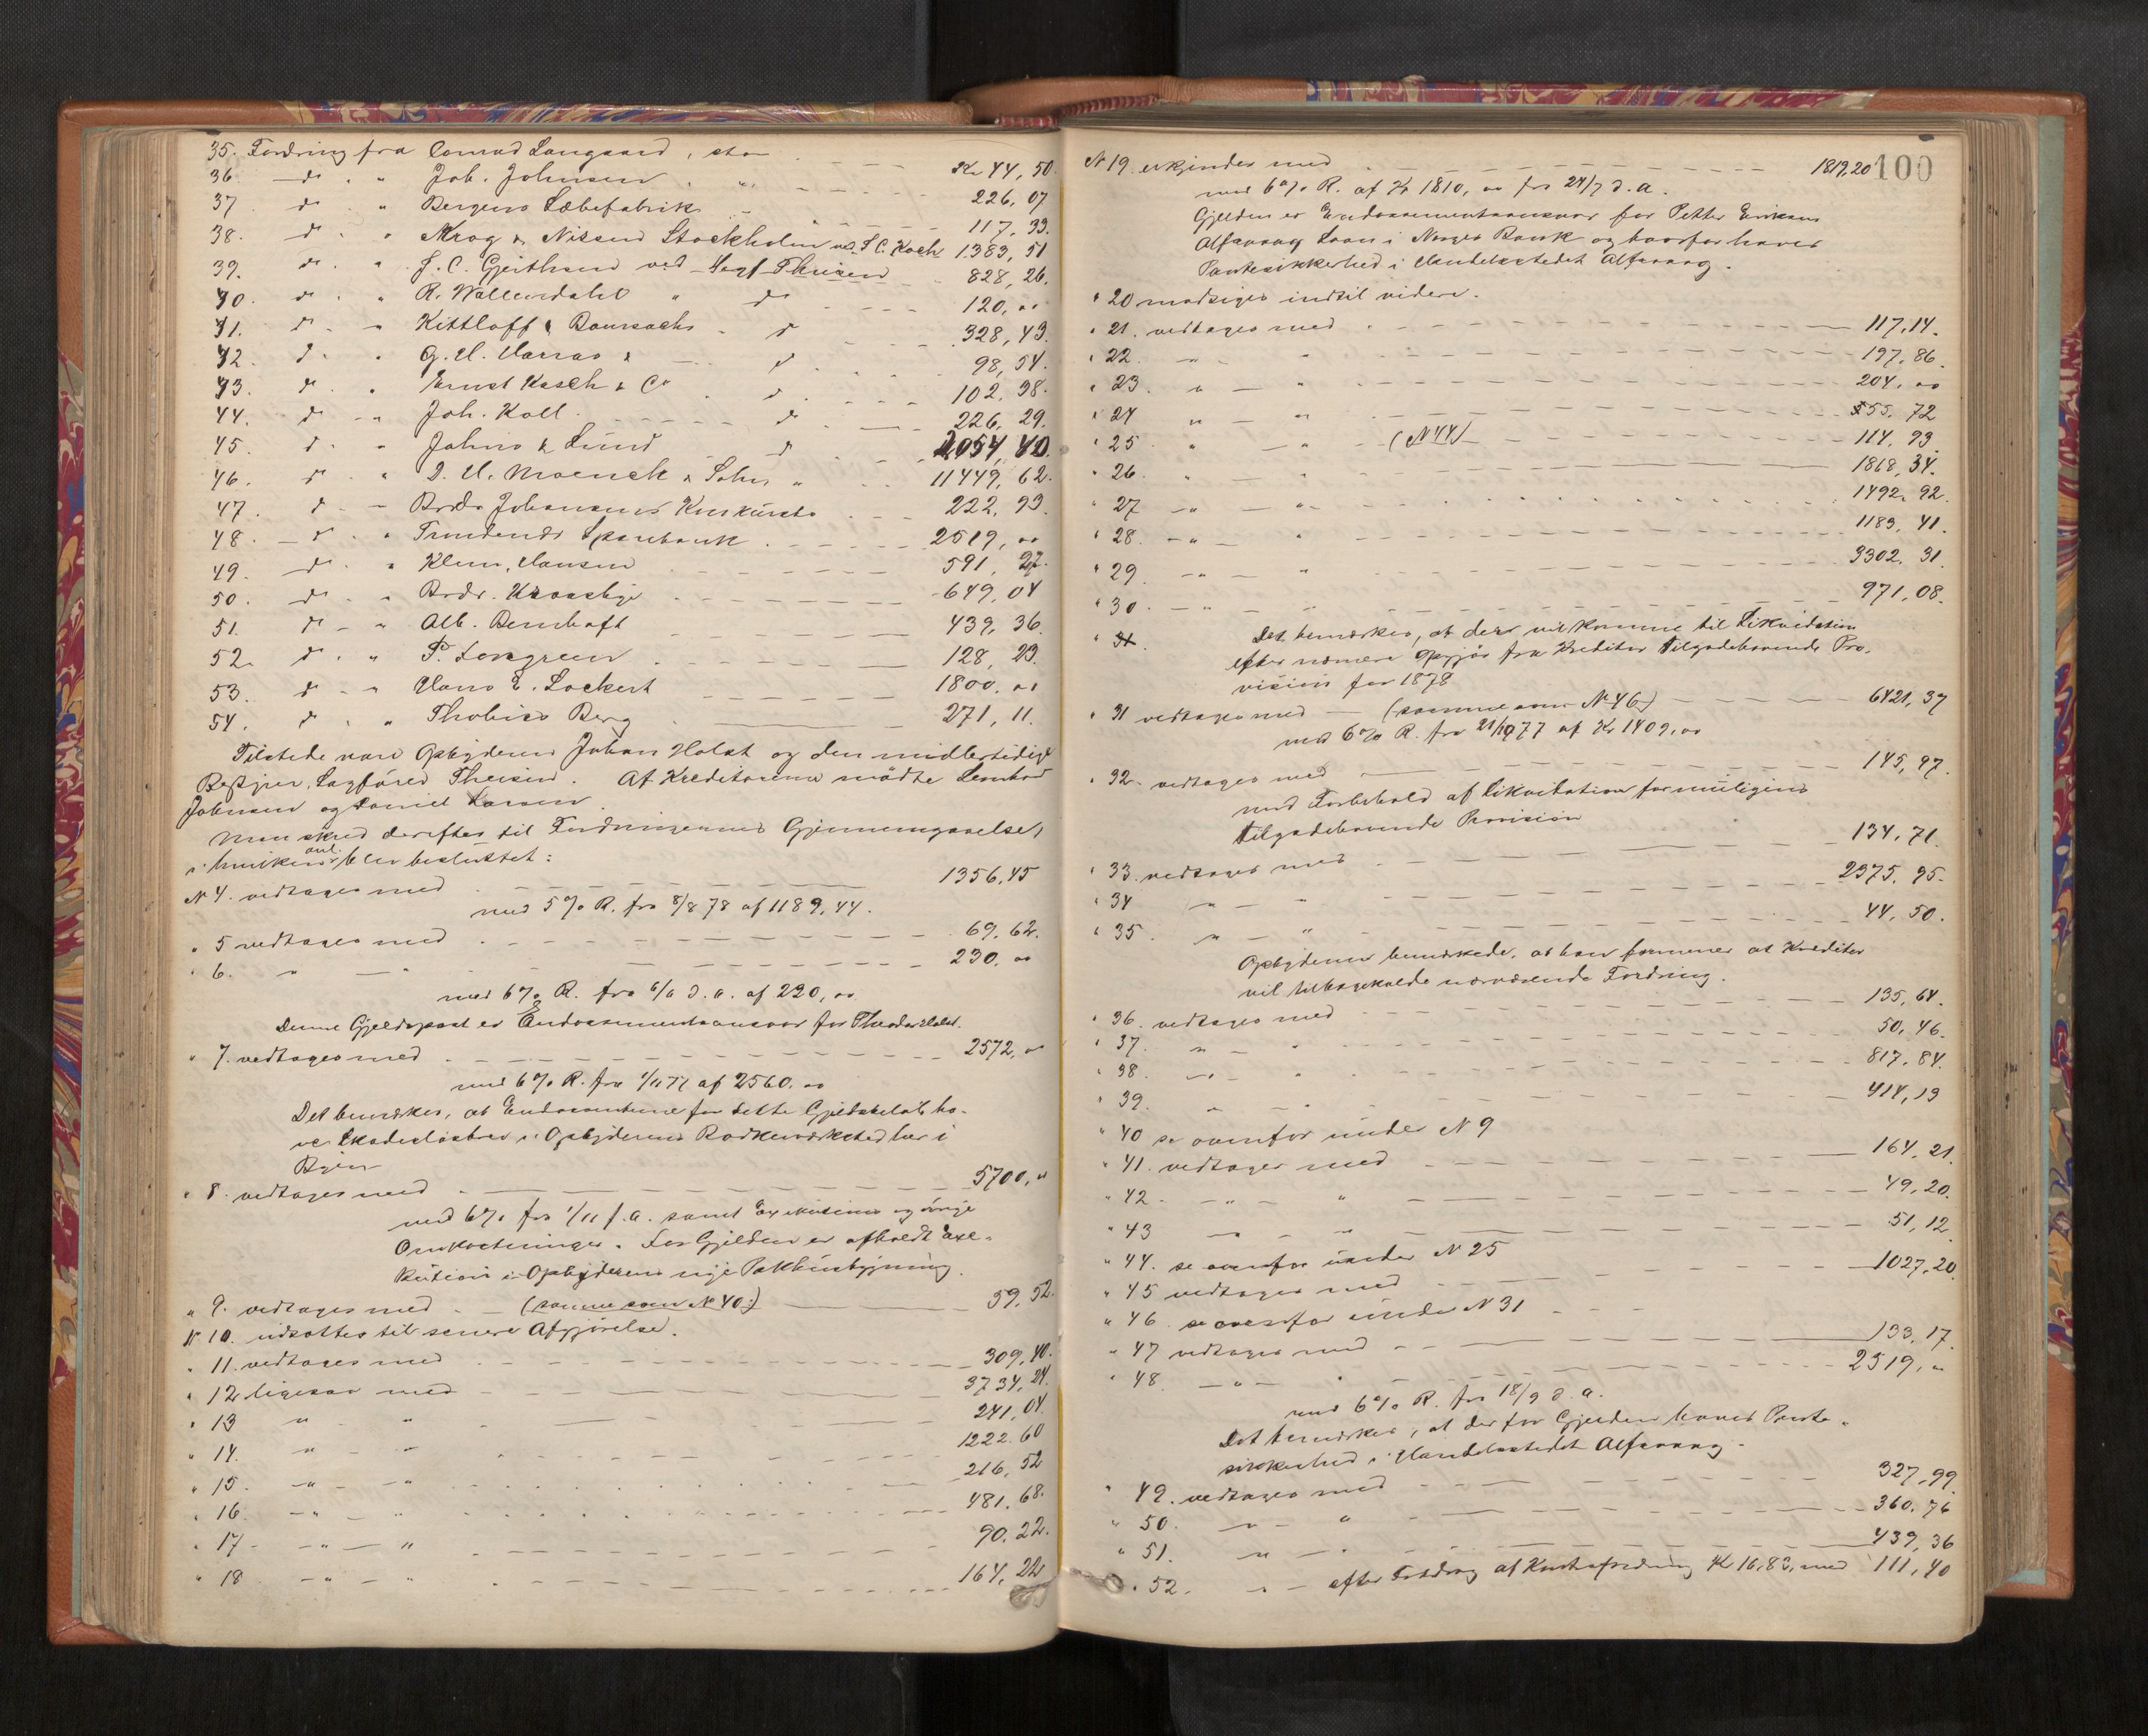 35. Fordring fra Conrad Langaard, stor Kr 44, 50.
36. do " Joh. Johnsen " 226, 07
37. do " Bergens Læbefabrik 117, 33.
38. do " Krog & Nissen Stockholm ved S. C. Koch 1383, 51
39. do " J. C. Gjerthsen ved Sagf. Theisen 828, 26.
40. do " R. Wallendahl " do 120, "
41. do " Kittloff & do 328, 43.
42. do " G. H. & do 98, 54.
43. do " Ernst Kasch & Co do 102, 38.
44. do " Joh. Koll do 226, 29.
45. do " Johns & Lund do 2054, 40.
46. do " D. H. Moenck & Sohn " 11449, 62.
47. do " Brdr Johansens Konkursbo 222, 93.
48. do " Trondends Sparebank 2519, "
49. do " Klem, Hansen 591, 27.
50. do " Brdr. 649, 04
51. do " Alb. Bernhoft 439, 36.
52. do " P. Longreen 128, 23.
53. do " Hans E. Lockert 1800, "
54. do " Thobias Berg 271, 11.
Tilstede vare Opbyderen Johan Holst og den midlertidige
Bestyrer, Sagfører Theisen. Af Kreditorerne mødte Leonhard
Johnsen og Daniel Larsen.
Man skred derefter til Fordringernes Gjennemgaaelse,
i hvilken anl. blev besluttet:
N 4. vedtages med 1356, 45
med 5 % R. fra 8/8 78 af 1189, 44.
" 5 vedtages med 69, 62.
" 6. " " 230, "
med 6 % R. fra 6/6 d. a. af 220, "
Denne Gjeldspost er Endossementsansvar for Theodor Holst.
" 7. vedtages med 2572, "
med 6 % R. fra 1/11 77 af 2560, "
Det bemærkes, at Endossenterne for dette Gjeldsbeløb ha-
ve Skadesløsbrev i Opbyderens her i
Byen
" 8. vedtages med 5700, "
med 6 % fra 1/11 f. a. samt Exekutions og øvrige
Omkostninger. For Gjelden er afholdt Exe-
kution i Opbyderens nye Pakhusbygning.
" 9. vedtages med (samme som N 40.) 59, 52.
N 10. udsættes til senere Afgjørelse.
" 11. vedtages med 309, 40.
" 12 ligesaa med 3734, 24.
" 13 " " 241, 04.
" 14. " " 1222. 60
" 15. " " 216, 52
" 16. " " 481, 68.
" 17 " " 90, 22.
" 18 " " 164, 22
100
N 19. erkjendes med 1819, 20
med 6 % R. af Kr 1810, " fra 24/7 d. a.
Gjelden er Endossementsansvar for Petter Eriksens
Alfsvaag Laan i Norges Bank og hvorfor haves
Pantesikkerhed i Handelsstedet Alfsvaag.
" 20 modsiges indtil videre.
" 21. vedtages med 117, 14.
" 22. " " 197, 86.
" 23. " " 204, "
" 24 " " 555, 72
" 25 " " (N 44) 114, 93.
" 26. " " 1868, 34.
" 27 " " 1492, 92.
" 28. " " 1183, 41.
" 29. " " 3302, 31.
" 30. " " 971, 08.
" 31. Det bemærkes, at der vil komme til Likvidation
efter nærmere Opgjør fra Kreditor Tilgodehavende Pro-
vision for 1878
" 31 vedtages med (samme som N 46) 6421, 37
med 6 % R. fra 21/10 77 af Kr 1409, "
" 32. vedtages med 145, 97.
med Forbehold af Likvidation for muligens
Tilgodehavende Provision
" 33. vedtages med 134, 71.
" 34 " " 2375, 95.
" 35. " " 44, 50.
Opbyderen bemærkede, at han formener at Kreditor
vil tilbagekalde nærværende Fordring.
" 36. vedtages med 135, 64.
" 37. " " 50, 46.
" 38. " " 817, 84.
" 39. " " 414, 13
" 40 se ovenfor under N 9
" 41. vedtages med 164, 21.
" 42. " " 49, 20.
" 43 " " 51, 12.
" 44. se ovenfor under N 25
" 45 vedtages med 1027, 20.
" 46. se ovenfor under N 31
" 47 vedtages med 133, 17.
" 48. " " 2519, "
med 6 % R. fra 18/9 d. a.
Det bemærkes, at der for Gjelden haves Pante-
sikkerhed i Handelsstedet Alfsvaag.
" 49. vedtages med 327, 99.
" 50. " " 360, 76
" 51. " " 439, 36
" 52. " efter Fradrag af Kr 16, 83, med 111, 40